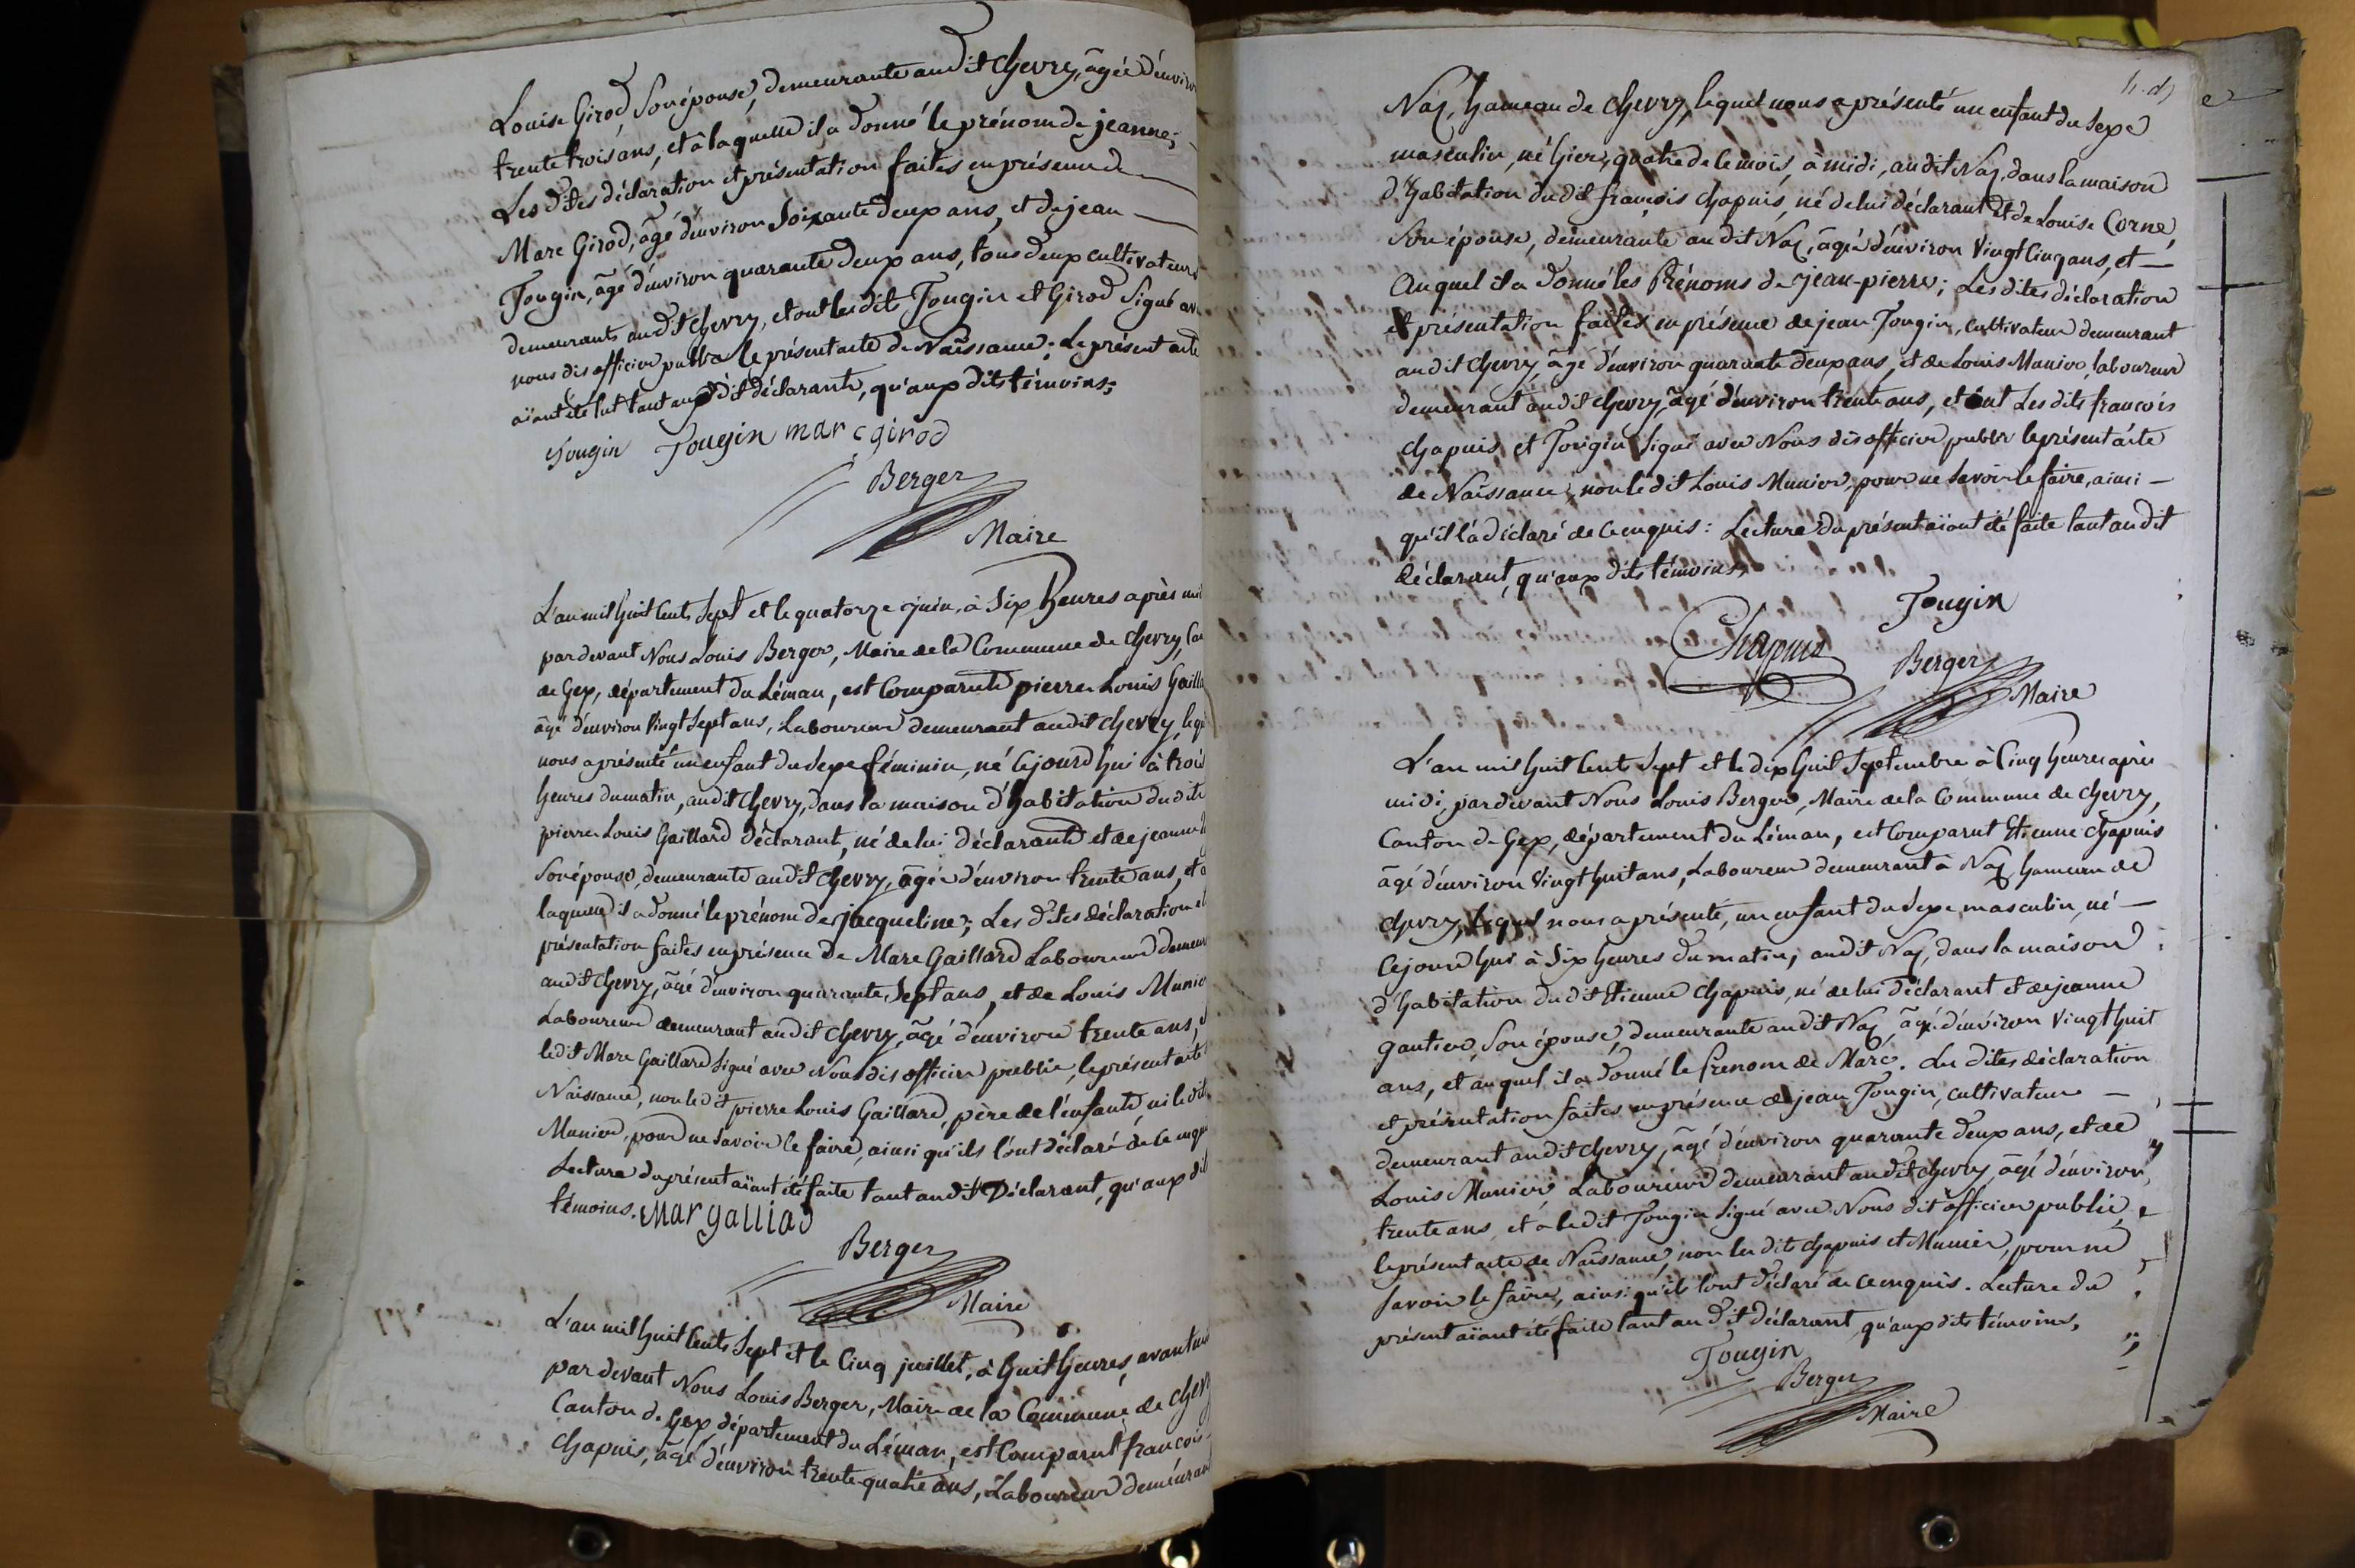 Louise Girod Son épouse, demeurante audit Chevry, âgée d'enviro
trente trois ans, et à laquelle il a donné le prénom de jeanne;
Les dites déclaration et présentation faites en présence de
Marc Girod, âgé d'environ Soixante deux ans, et de jean
Fougin, âgé d'environ quarante deux ans, tous deux cultivateurs
demeurants audit Chevry, et ont les dits Fougin et Girod Signé av
nous dis officier public le présent acte de Naissance; Le présent acte
aïant été lut tant au dit déclarant, qu'aux dits témoins;
Fougin Fougin marc girod
Berger
Maire
L'an mil huit Cents Sept et le quatorze juin, à Six heures après mi
pardevant Nous Louis Berger, Maire de la Commune de Chevry, Ca
de Gex, département du Léman, est Comparut pierre Louis Gailla
âgé d'environ Vingt Sept ans, Laboureur demeurant audit Chevry, leq
nous a présenté un enfant du Sexe féminin, né Cejourd'hui à trois
heures du matin, audit Chevry, dans la maison d'habitation dudit
pierre Louis Gaillard déclarant, né de lui déclarant et de jeanne
Son épouse, demeurante audit Chevry, âgée d'environ trente ans, et à
laquelle il a donné le prénom de jacqueline; Les dites déclaration et
présentation faites en présence de Marc Gaillard Laboureur demeur
audit Chevry, âgé d'environ quarante Sept ans, et de Louis Munier
Laboureur demeurant audit Chevry, âgé d'environ trente ans,
ledit Marc Gaillard Signé avec Nous dis officier public, le présent acte
Naissance, non ledit pierre Louis Gaillard, père de l'enfant, ni ledit
Munier, pour ne Savoir le faire, ainsi qu'ils l'ont déclaré de Ce enqui
Lecture du présent aïant été faite tant audit Déclarant, qu'aux dit
témoins. Mar galliad
Berger
Maire
L'an mil huit Cents Sept et le Cinq juillet, à huit heures, avant mi
par devant Nous Louis Berger, Maire de la Commune de Chevr
Canton de Gex, département du Léman, est Comparut francois
Chapuis, âgé d'environ trente quatre ans, Laboureur demeurant
Naz, hameau de Chevry, lequel nous a présenté un enfant du Sexe
masculin, né hier, quatre de Ce mois, à midi, audit Naz, dans la maison
d'habitation dudit françois Chapuis, né de lui déclarant et de Louise Corne,
Son épouse, demeurante audit Naz, âgée d'environ Vingt Cinq ans, et
Auquel il a donné les Prénoms de jean-pierre; Les dites déclaration
et présentation faites en présence de jean Fougin, Cultivateur demeurant
audit Chevry, âgé d'environ quarante deux ans, et de Louis Munier, laboureur
demeurant audit Chevry, âgé d'environ trente ans, et ont Les dits francois
Chapuis et Fougin Signé avec Nous dis officier public le présent acte
de Naissance, non ledit Louis Munier, pour ne Savoir le faire, ainsi
qu'il l'a déclaré de Ce enquis: Lecture du présent aïant été faite tant audit
déclarant, qu'aux dits témoins,
Fougin
Chapuis
Berger
Maire
L'an mil huit Cents Sept et le dix huit Septembre à Cinq heures après
midi, pardevant Nous Louis Berger, Maire de la Commune de Chevry,
Canton de Gex, département du Léman, est Comparut Etienne Chapuis
âgé d'environ Vingt huit ans, Laboureur demeurant à Naz hameau de
Chevry, lequel nous a présenté, un enfant du Sexe masculin, né
Cejourd'hui à Six heures du matin, audit Naz, dans la maison
d'habitation dudit Etienne Chapuis, né de lui déclarant et de jeanne
gautier, Son épouse, demeurante audit Naz, âgée d'environ Vingt huit
ans, et auquel il a donné le Prenom de Marc. Les dites déclaration
et présentation faites en présence de jean Fougin, cultivateur
demeurant audit Chevry, âgé d'environ quarante deux ans, et de
Louis Munier Laboureur demeurant audit Chevry, âgé d'environ
trente ans, et a ledit Fougin Signé avec Nous dit officier public,
le présent acte de Naissance, non les dits Chapuis et Munier, pour ne
Savoir le faire, ainsi qu'ils l'ont déclaré de Ce enquis. Lecture du
présent aïant été faite tant au dit déclarant, qu'aux dits témoins,
Fougin
Berger
Maire